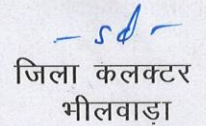 - sd -
जिला कलक्टर
भीलवाड़ा